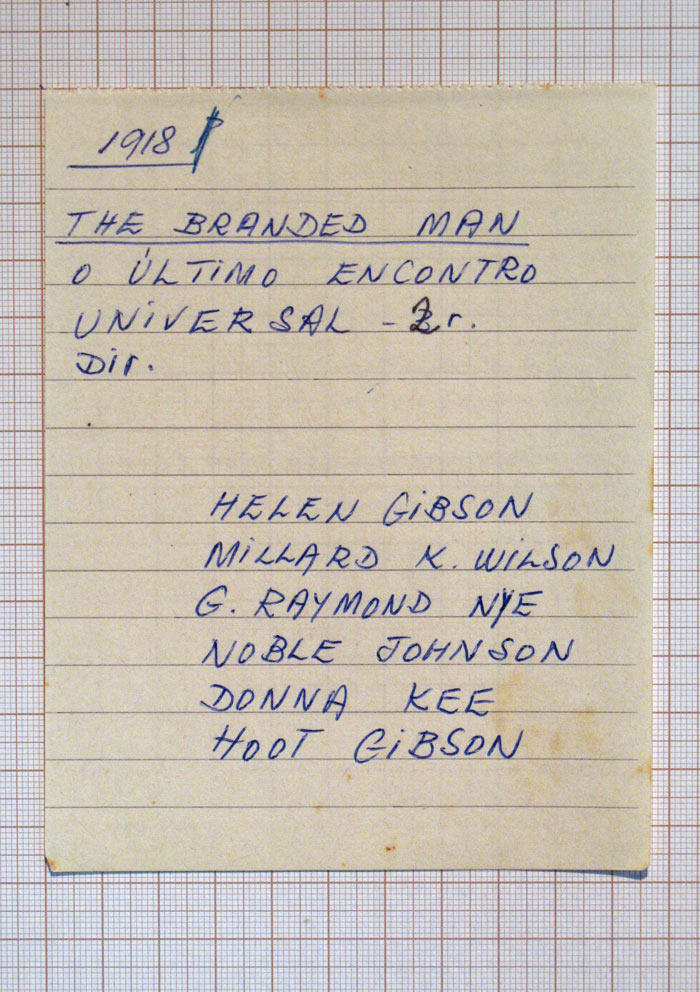 1918
THE BRANDED MAN
O ÚLTIMO ENCONTRO
UNIVERSAL - 2 r.
Dir.
HELEN GIBSON
MILLARD K. WILSON
G. RAYMOND NYE
NOBLE JOHNSON
DONNA KEE
HOOT GIBSON